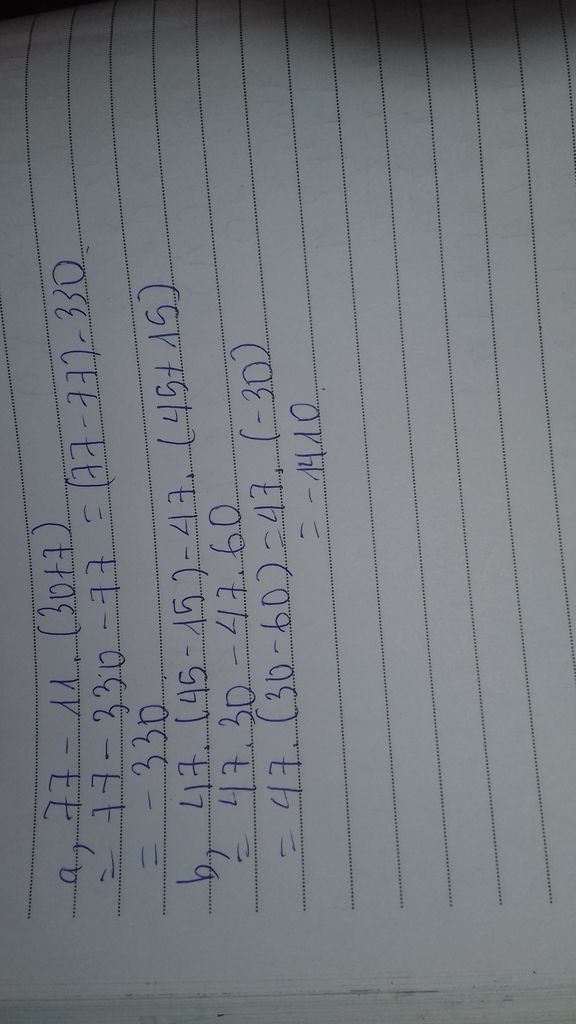 a, 77 - 11. (30+7)
= 77 - 330 - 77 = (77 - 77) - 330.
= - 330
b, 47. (45 - 15) - 47. (45 + 15)
= 47. 30 - 47. 60
= 47. (30 - 60) = 47. (-30)
= -1410.